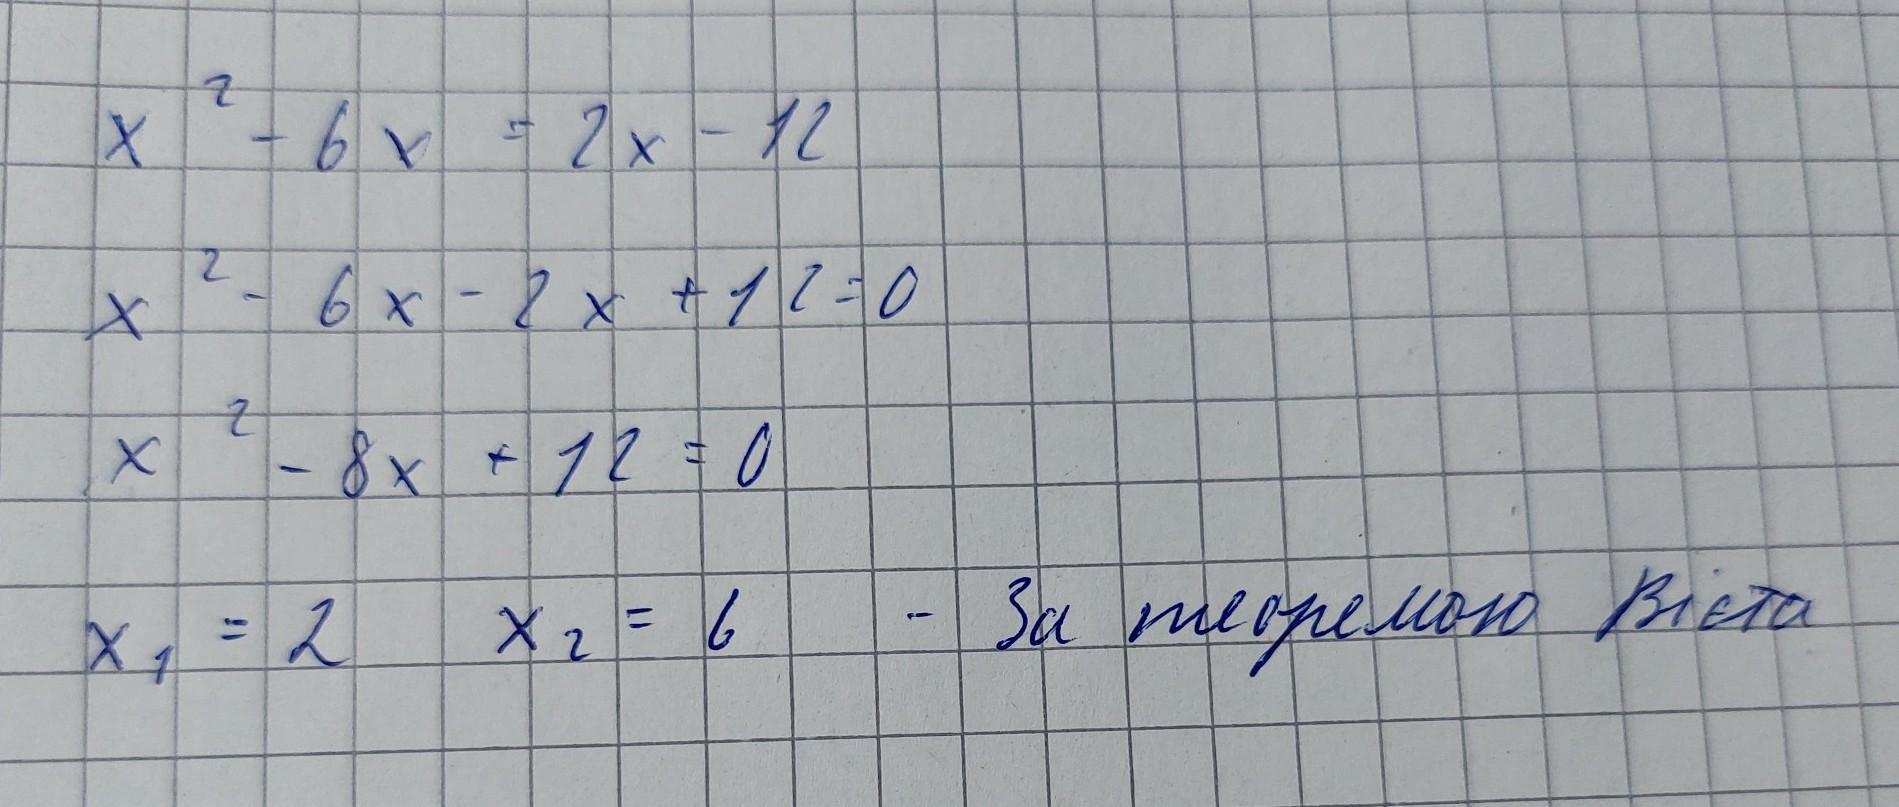 x² - 6x = 2x - 12
x² - 6x - 2x + 12 = 0
x² - 8x + 12 = 0
x₁ = 2 x₂ = 6 - За теоремою Вієта